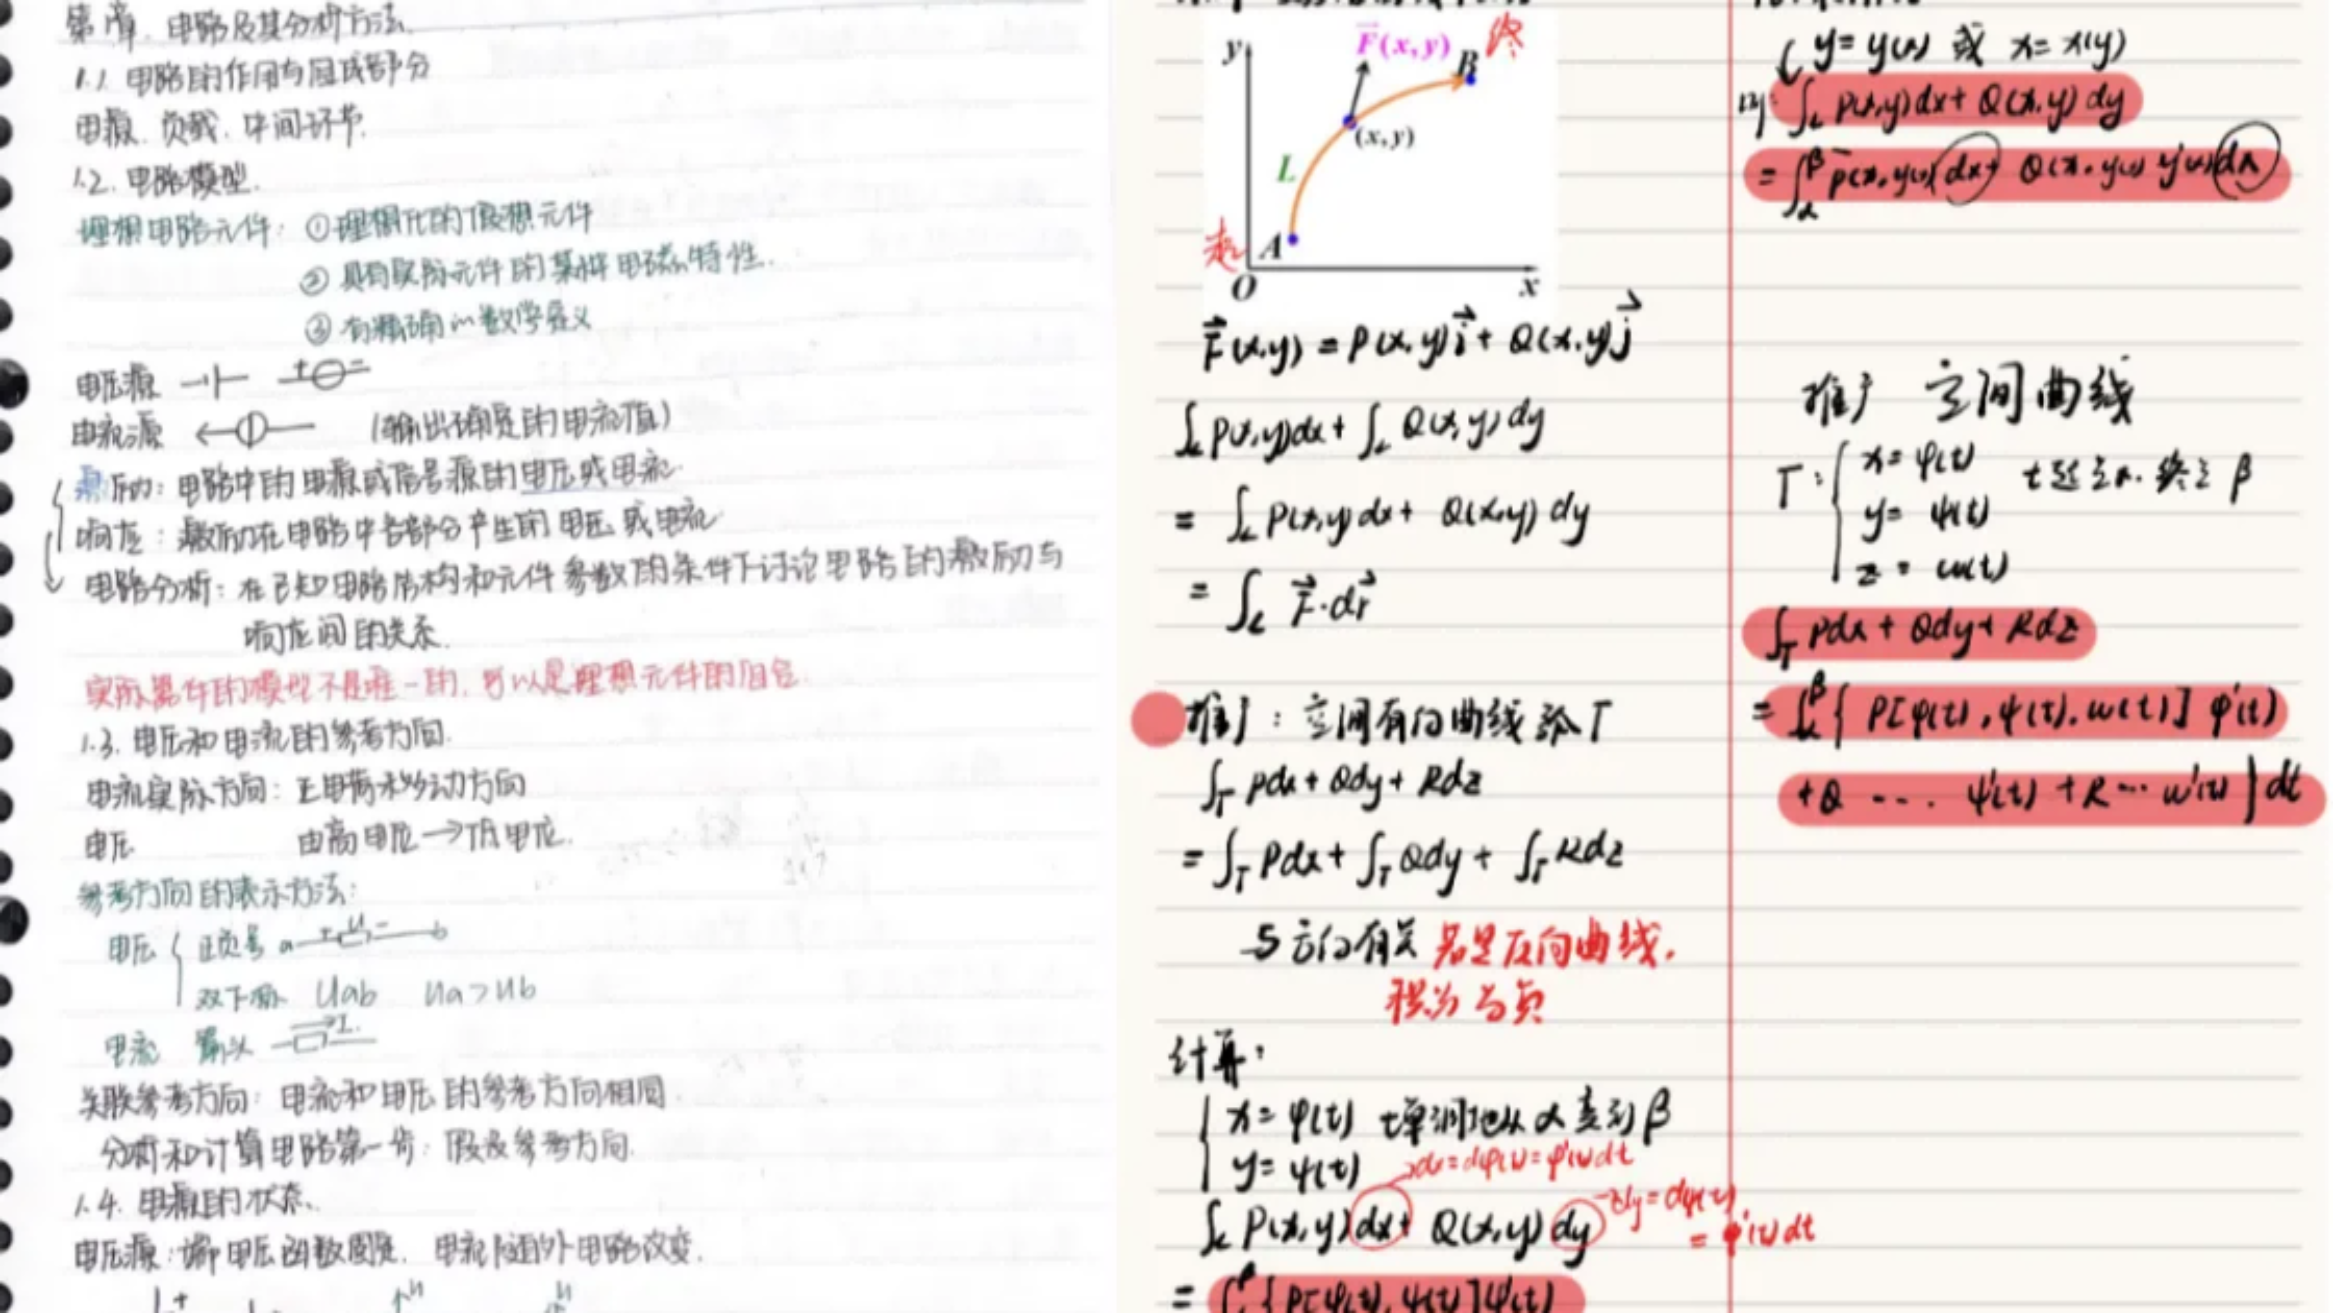 第1章. 电路及其分析方法.
1.1. 电路的作用与组成部分
电源. 负载. 中间环节.
1.2. 电路模型.
理想电路元件: ①理想化的假想元件
② 具有实际元件的某种电磁特性.
③ 有精确的数学定义
电压源 + −
电流源 (输出确定的电流值)
激励: 电路中的电源或信号源的电压或电流.
响应: 激励在电路中各部分产生的电压或电流
电路分析: 在已知电路结构和元件参数的条件下讨论电路的激励与
响应间的关系.
实际器件的模型不是唯一的, 可以是理想元件的组合.
1.3. 电压和电流的参考方向.
电流实际方向: 正电荷移动方向
电压 由高电位→低电位.
参考方向的表示方法:
电压 { 正负号 a + u − b
双下标 Uab Ua>Ub
电流 箭头 I.
关联参考方向: 电流和电压的参考方向相同.
分析和计算电路第一步: 假设参考方向.
1.4. 电源的状态.
电压源: 端电压函数固定. 电流随外电路改变.
y F(x,y) B 终
(x,y)
L
起 A
O x
F⃗(x,y) = P(x,y)i⃗ + Q(x,y)j⃗
∫L P(x,y)dx + ∫L Q(x,y)dy
= ∫L P(x,y)dx + Q(x,y)dy
= ∫L F⃗·dr⃗
推广: 空间有向曲线弧Γ
∫Γ Pdx + Qdy + Rdz
= ∫Γ Pdx + ∫Γ Qdy + ∫Γ Rdz
与方向有关 若是反向曲线.
积分为负
计算:
{ x = φ(t) t单调地从α变到β
y = ψ(t) dx = dφ(t) = φ'(t)dt
∫L P(x,y)dx + Q(x,y)dy dy = dψ(t)
= ψ'(t)dt
= ∫ { P[φ(t), ψ(t)]φ'(t)
y = y(x) 或 x = x(y)
则: ∫L P(x,y)dx + Q(x,y)dy
= ∫αβ P(x,y(x))dx + Q(x,y(x))y'(x)dx
推广 空间曲线
Γ: { x = φ(t) t起为α. 终为β
y = ψ(t)
z = ω(t)
∫Γ Pdx + Qdy + Rdz
= ∫αβ { P[φ(t), ψ(t), ω(t)] φ'(t)
+Q .... ψ'(t) + R... ω'(t) } dt